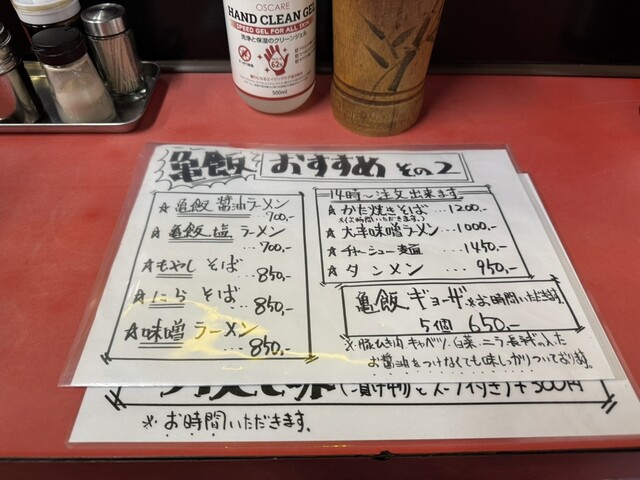 OSCARE
HAND CLEAN GEL
SPEED GEL FOR ALL SKIN
洗浄と保湿のクリーンジェル
500ml
亀飯 おすすめ その2
☆亀飯 醤油ラーメン
700,-
☆亀飯 塩 ラーメン
700,-
☆もやし そば
850,-
☆にら そば
850,-
☆味噌 ラーメン
850,-
14時~注文出来ます
☆かた焼きそば…1200,-
※(お時間いただきます。)
☆大辛味噌ラーメン…1000,-
☆チャーシュー麺…1450,-
☆タンメン…950,-
亀飯 ギョーザ ※お時間いただきます。
5個 650,-
※豚ひき肉 キャベツ 白菜 ニラ 長ネギの入た
お醤油をつけなくても味しっかりついております。
(漬け物とスープ付き)+300円
※お時間いただきます。